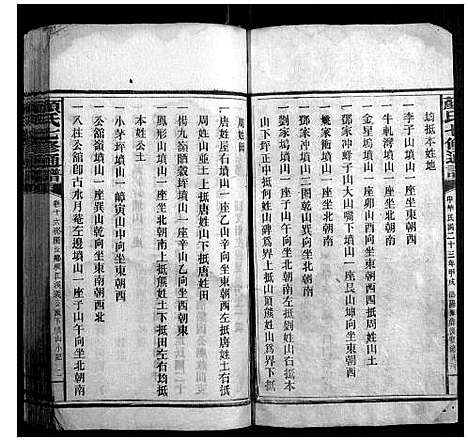 顏氏七修通譜
中華民國二十三年甲戌
均抵本姓地
一李子山墳山一座坐南朝北
一牛軋灣墳山一座坐北朝南
一金星塢墳山一座卯山酉向坐東朝西抵周姓山土
一鄧家沖蟬子山大山嘴下墳山一座艮山坤向坐東朝西
一魏家衖墳山二圖乾山巽向坐北朝南
一劉家塢墳山一座子山午向坐北朝南左抵劉姓山右抵本
山下坪正中抵何姓山碑爲界上抵山頂抵熊姓山爲界下抵
周姓田
一唐姓屋背墳山一座乙山辛向坐東朝西左抵唐姓土右抵
周姓山並土上抵唐姓山下抵唐姓田
一楊九嶺隴穀坪墳山一座辛山乙向坐西朝東
一鳳形山墳山一座坐北朝南上抵熊姓土下抵田左右均抵
本姓公土
一小茅坪墳山一嶂寅山申向坐東朝西
一公館嶺墳山一座巽山乾向坐東南朝西北
一入社公館卽古水月菴左邊墳山一座子山午向坐北朝南
顏氏七修通譜
卷十六